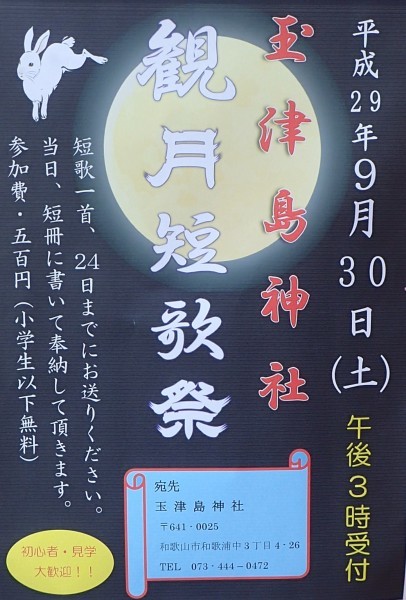 平成29年9月30日(土)
午後3時受付
玉津島神社
観月短歌祭
短歌一首、24日までにお送りください。
当日、短冊に書いて奉納して頂きます。
参加費・五百円(小学生以下無料)
宛先
玉津島神社
〒641-0025
和歌山市和歌浦中3丁目4-26
TEL 073-444-0472
初心者・見学
大歓迎!!